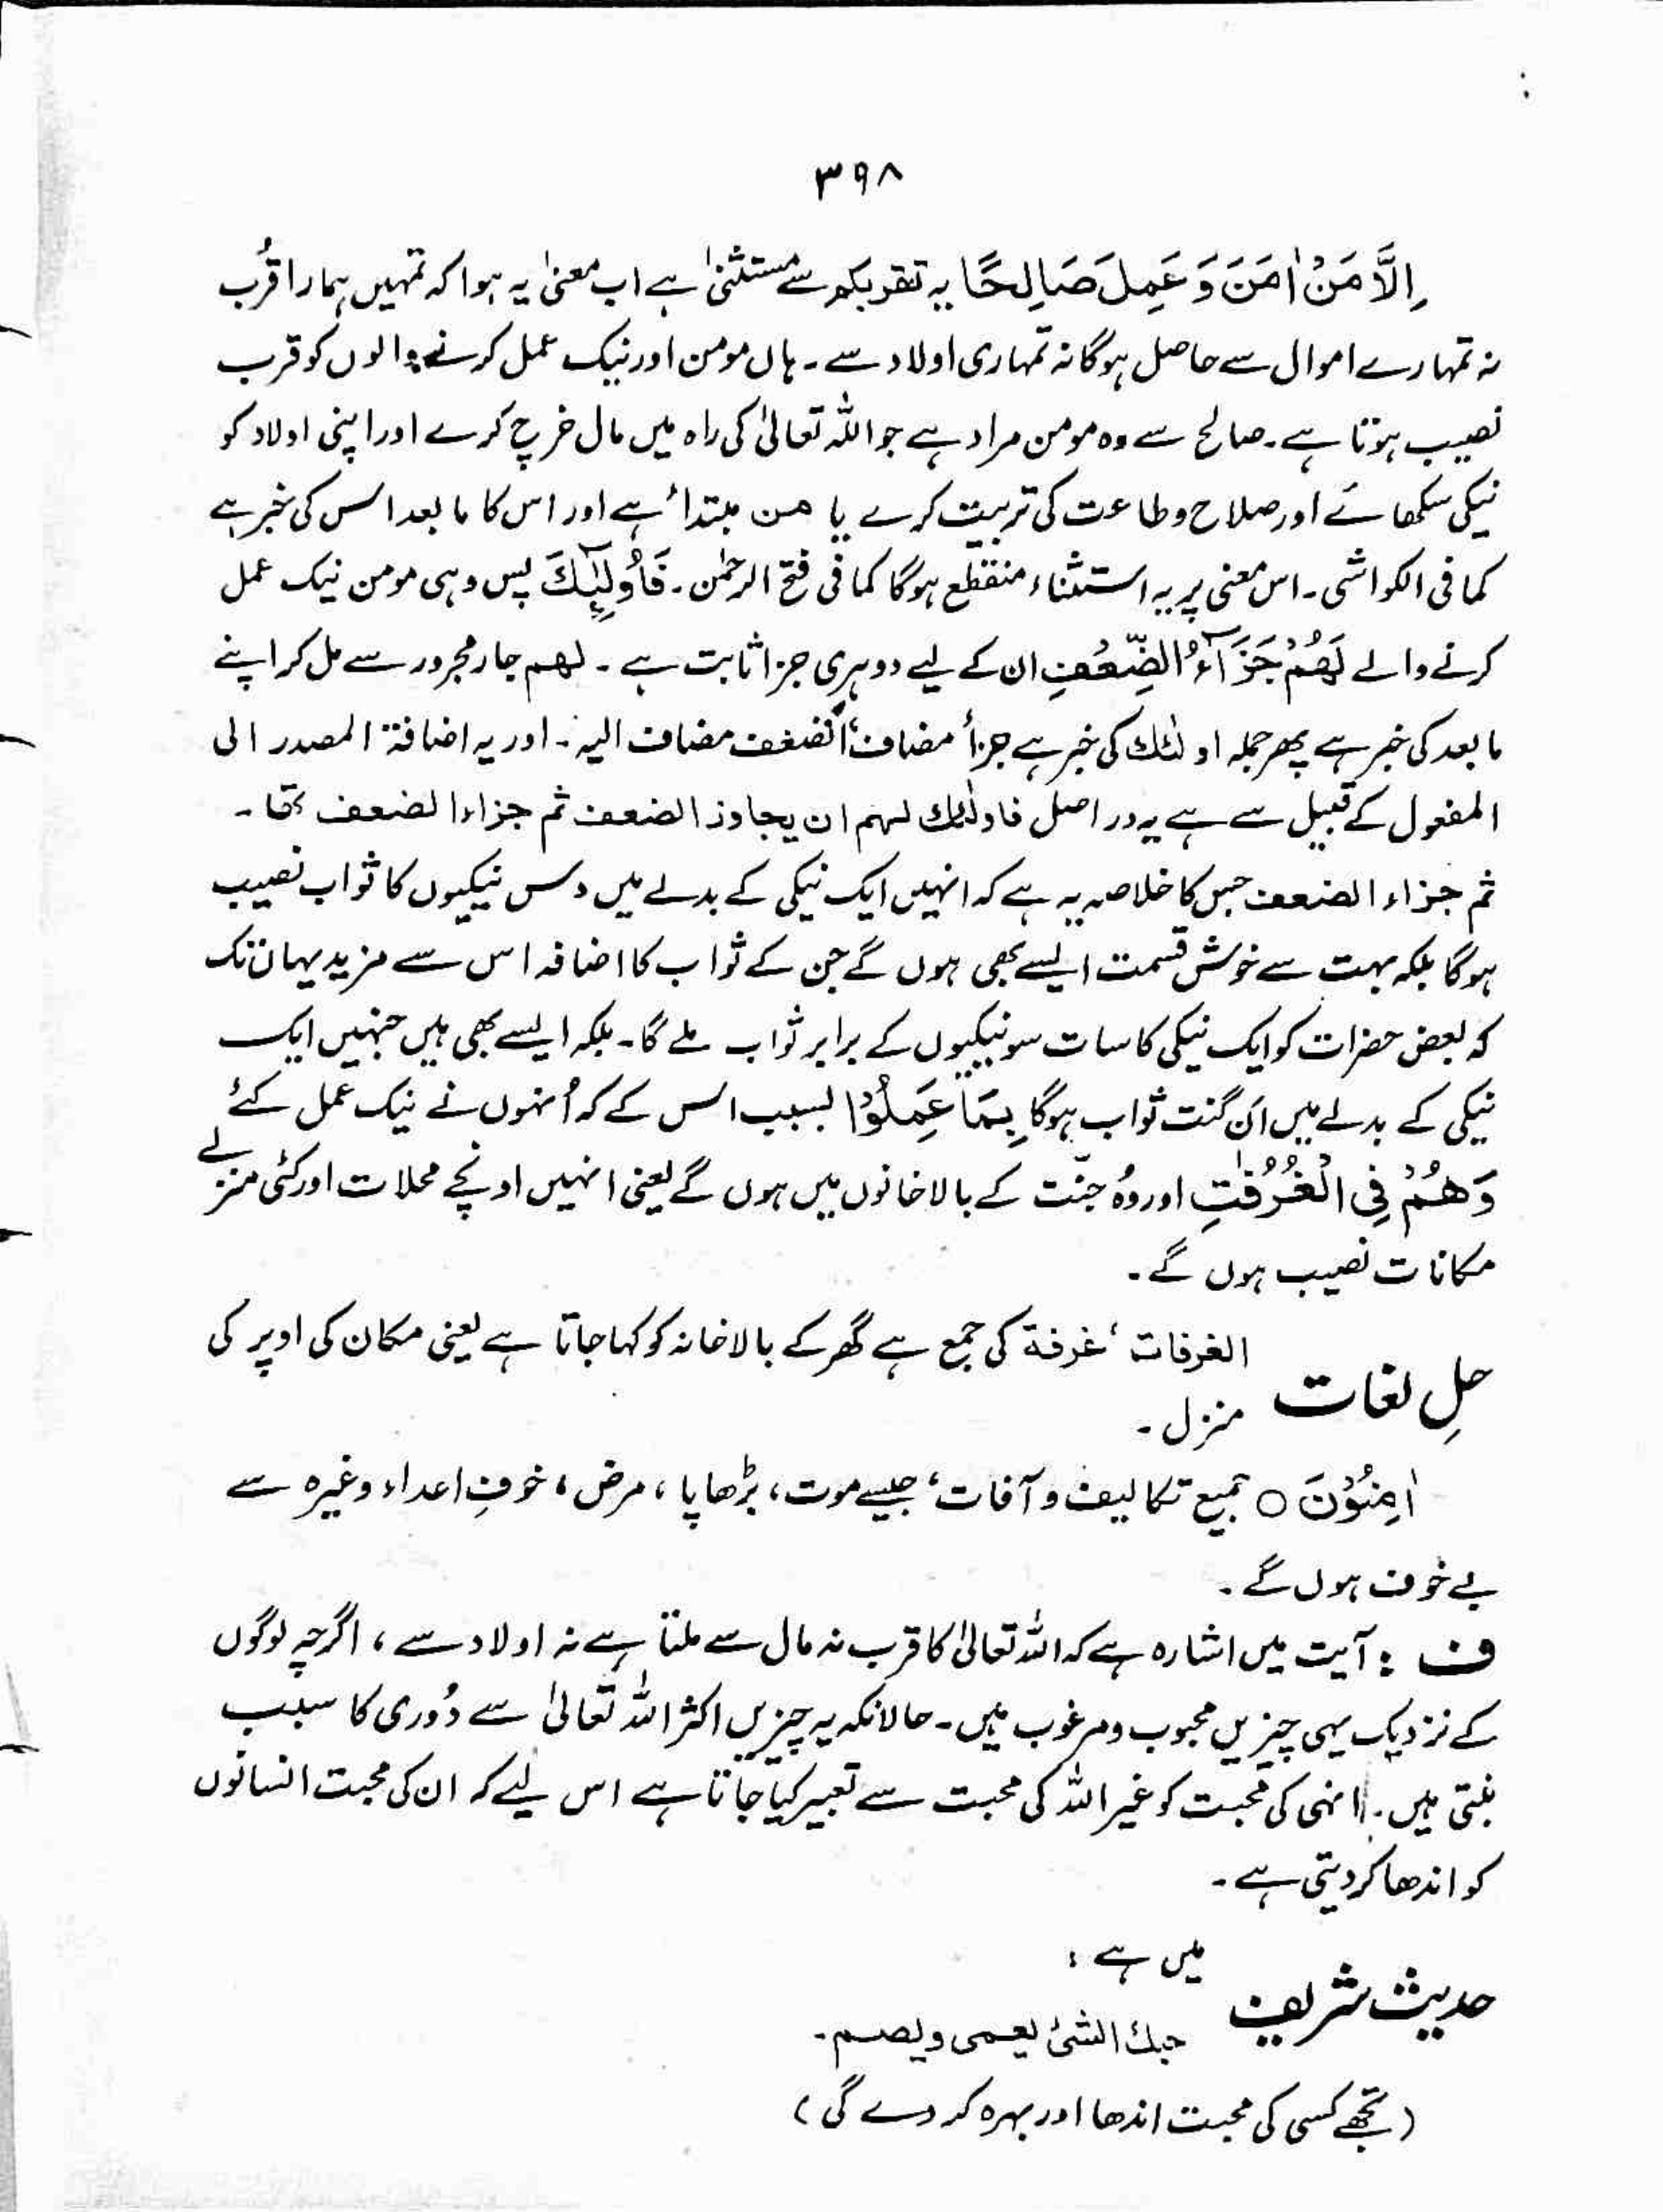 ۳۹۸
اِلَّا مَنْ اٰمَنَ وَ عَمِلَ صَالِحًا یہ تقربکم سے مستثنیٰ ہے اب معنیٰ یہ ہوا کہ تمہیں ہمارا قُرب
نہ تمہارے اموال سے حاصل ہوگا نہ تمہاری اولاد سے ۔ ہاں مومن اور نیک عمل کرنے والوں کو قرب
نصیب ہوتا ہے ۔ صالح سے وہ مومن مراد ہے جو اللہ تعالیٰ کی راہ میں مال خرچ کرے اور اپنی اولاد کو
نیکی سکھائے اور صلاح و طاعت کی تربیت کرے یا من مبتداء ہے اور اس کا ما بعد اس کی خبر ہے
کما فی الکواشی ۔ اس معنی پر یہ استثناء منقطع ہوگا کما فی فتح الرحمٰن ۔ فَاُولٰٓئِكَ پس وہی مومن نیک عمل
کرنے والے لَهُمْ جَزَآءُ الضِّعْفِ ان کے لیے دوہری جزا ثابت ہے ۔ لهم جار مجرور سے مل کر اپنے
ما بعد کی خبر ہے پھر جملہ اولئك کی خبر ہے جزأ مضاف، الضعف مضاف الیہ ۔ اور یہ اضافۃ المصدر الی
المفعول کے قبیل سے ہے یہ در اصل فاولٰئك لهم ان یجاوز الضعف ثم جزاء الضعف تھا ۔
ثم جزاء الضعف جس کا خلاصہ یہ ہے کہ انہیں ایک نیکی کے بدلے میں دس نیکیوں کا ثواب نصیب
ہوگا بلکہ بہت سے خوش قسمت ایسے بھی ہوں گے جن کے ثواب کا اضافہ اس سے مزید یہاں تک
کہ بعض حضرات کو ایک نیکی کا سات سو نیکیوں کے برابر ثواب ملے گا ۔ بلکہ ایسے بھی ہیں جنہیں ایک
نیکی کے بدلے میں اَن گنت ثواب ہوگا بِمَا عَمِلُوْا بسبب اس کے کہ اُنہوں نے نیک عمل کئے
وَهُمْ فِی الْغُرُفٰتِ اور وُہ جنّت کے بالا خانوں میں ہوں گے یعنی انہیں اونچے محلات اور کئی منزلے
مکانات نصیب ہوں گے ۔
الغرفات ، غرفۃ کی جمع ہے گھر کے بالا خانہ کو کہا جاتا ہے یعنی مکان کی اوپر کی
حلِ لغات
منزل ۔
اٰمِنُوْنَ ○ جمیع تکالیف و آفات ، جیسے موت ، بڑھاپا ، مرض ، خوفِ اعداء وغیرہ سے
بے خوف ہوں گے ۔
ف : آیت میں اشارہ ہے کہ اللہ تعالیٰ کا قرب نہ مال سے ملتا ہے نہ اولاد سے ، اگرچہ لوگوں
کے نزدیک یہی چیزیں محبوب و مرغوب ہیں ۔ حالانکہ یہ چیزیں اکثر اللہ تعالیٰ سے دُوری کا سبب
بنتی ہیں ۔ انہی کی محبت کو غیر اللہ کی محبت سے تعبیر کیا جاتا ہے اس لیے کہ ان کی محبت انسانوں
کو اندھا کر دیتی ہے ۔
میں ہے :
حدیث شریف
حبك الشئ یعمی ویصم ۔
( تجھے کسی کی محبت اندھا اور بہرہ کر دے گی )